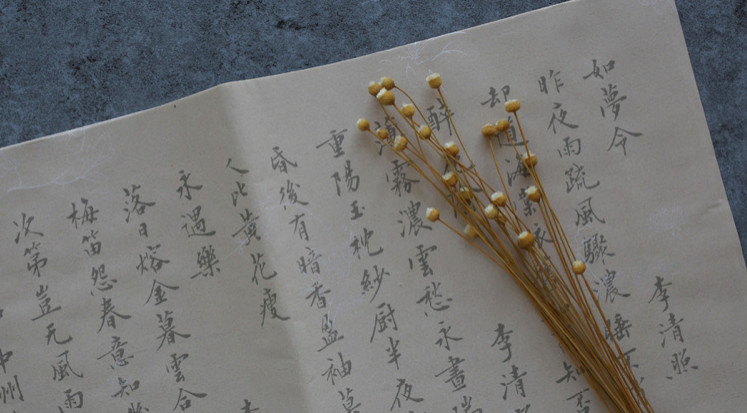 如夢令 李清照
昨夜雨疏風驟濃睡不
却道海棠依 知
醉 李清
薄霧濃雲愁永晝瑞
重陽玉枕紗厨半夜
昏後有暗香盈袖莫
人比黃花瘦
永遇樂
落日熔金暮雲合
梅笛怨春意知幾
次第豈无風雨
中州